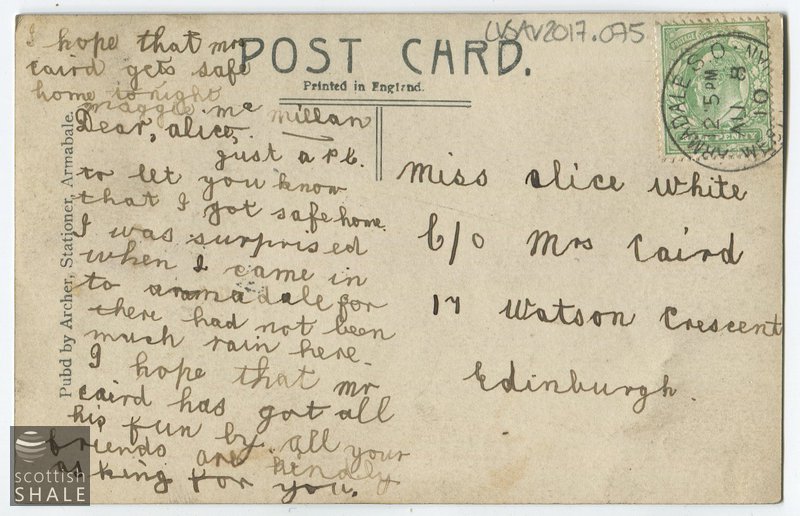 LVSAV2017.075
POST CARD.
Printed in England.
I hope that mrs
caird gets safe
home to night
maggie mc millan
Dear, alice,
just a P.C.
to let you know
that I got safe home.
I was surprised
when I came in
to aramadale for
there had not been
much rain here.
I hope that mr
caird has got all
his fun by. all your
friends are kindly
asking for you.
Miss Alice White
C/O Mrs Caird
17 Watson Crescent
Edinburgh.
Pubd by Archer, Stationer, Armabale.
ARMADALE S.O.
12 5 PM
AU 8
10
PENNY
scottish
SHALE